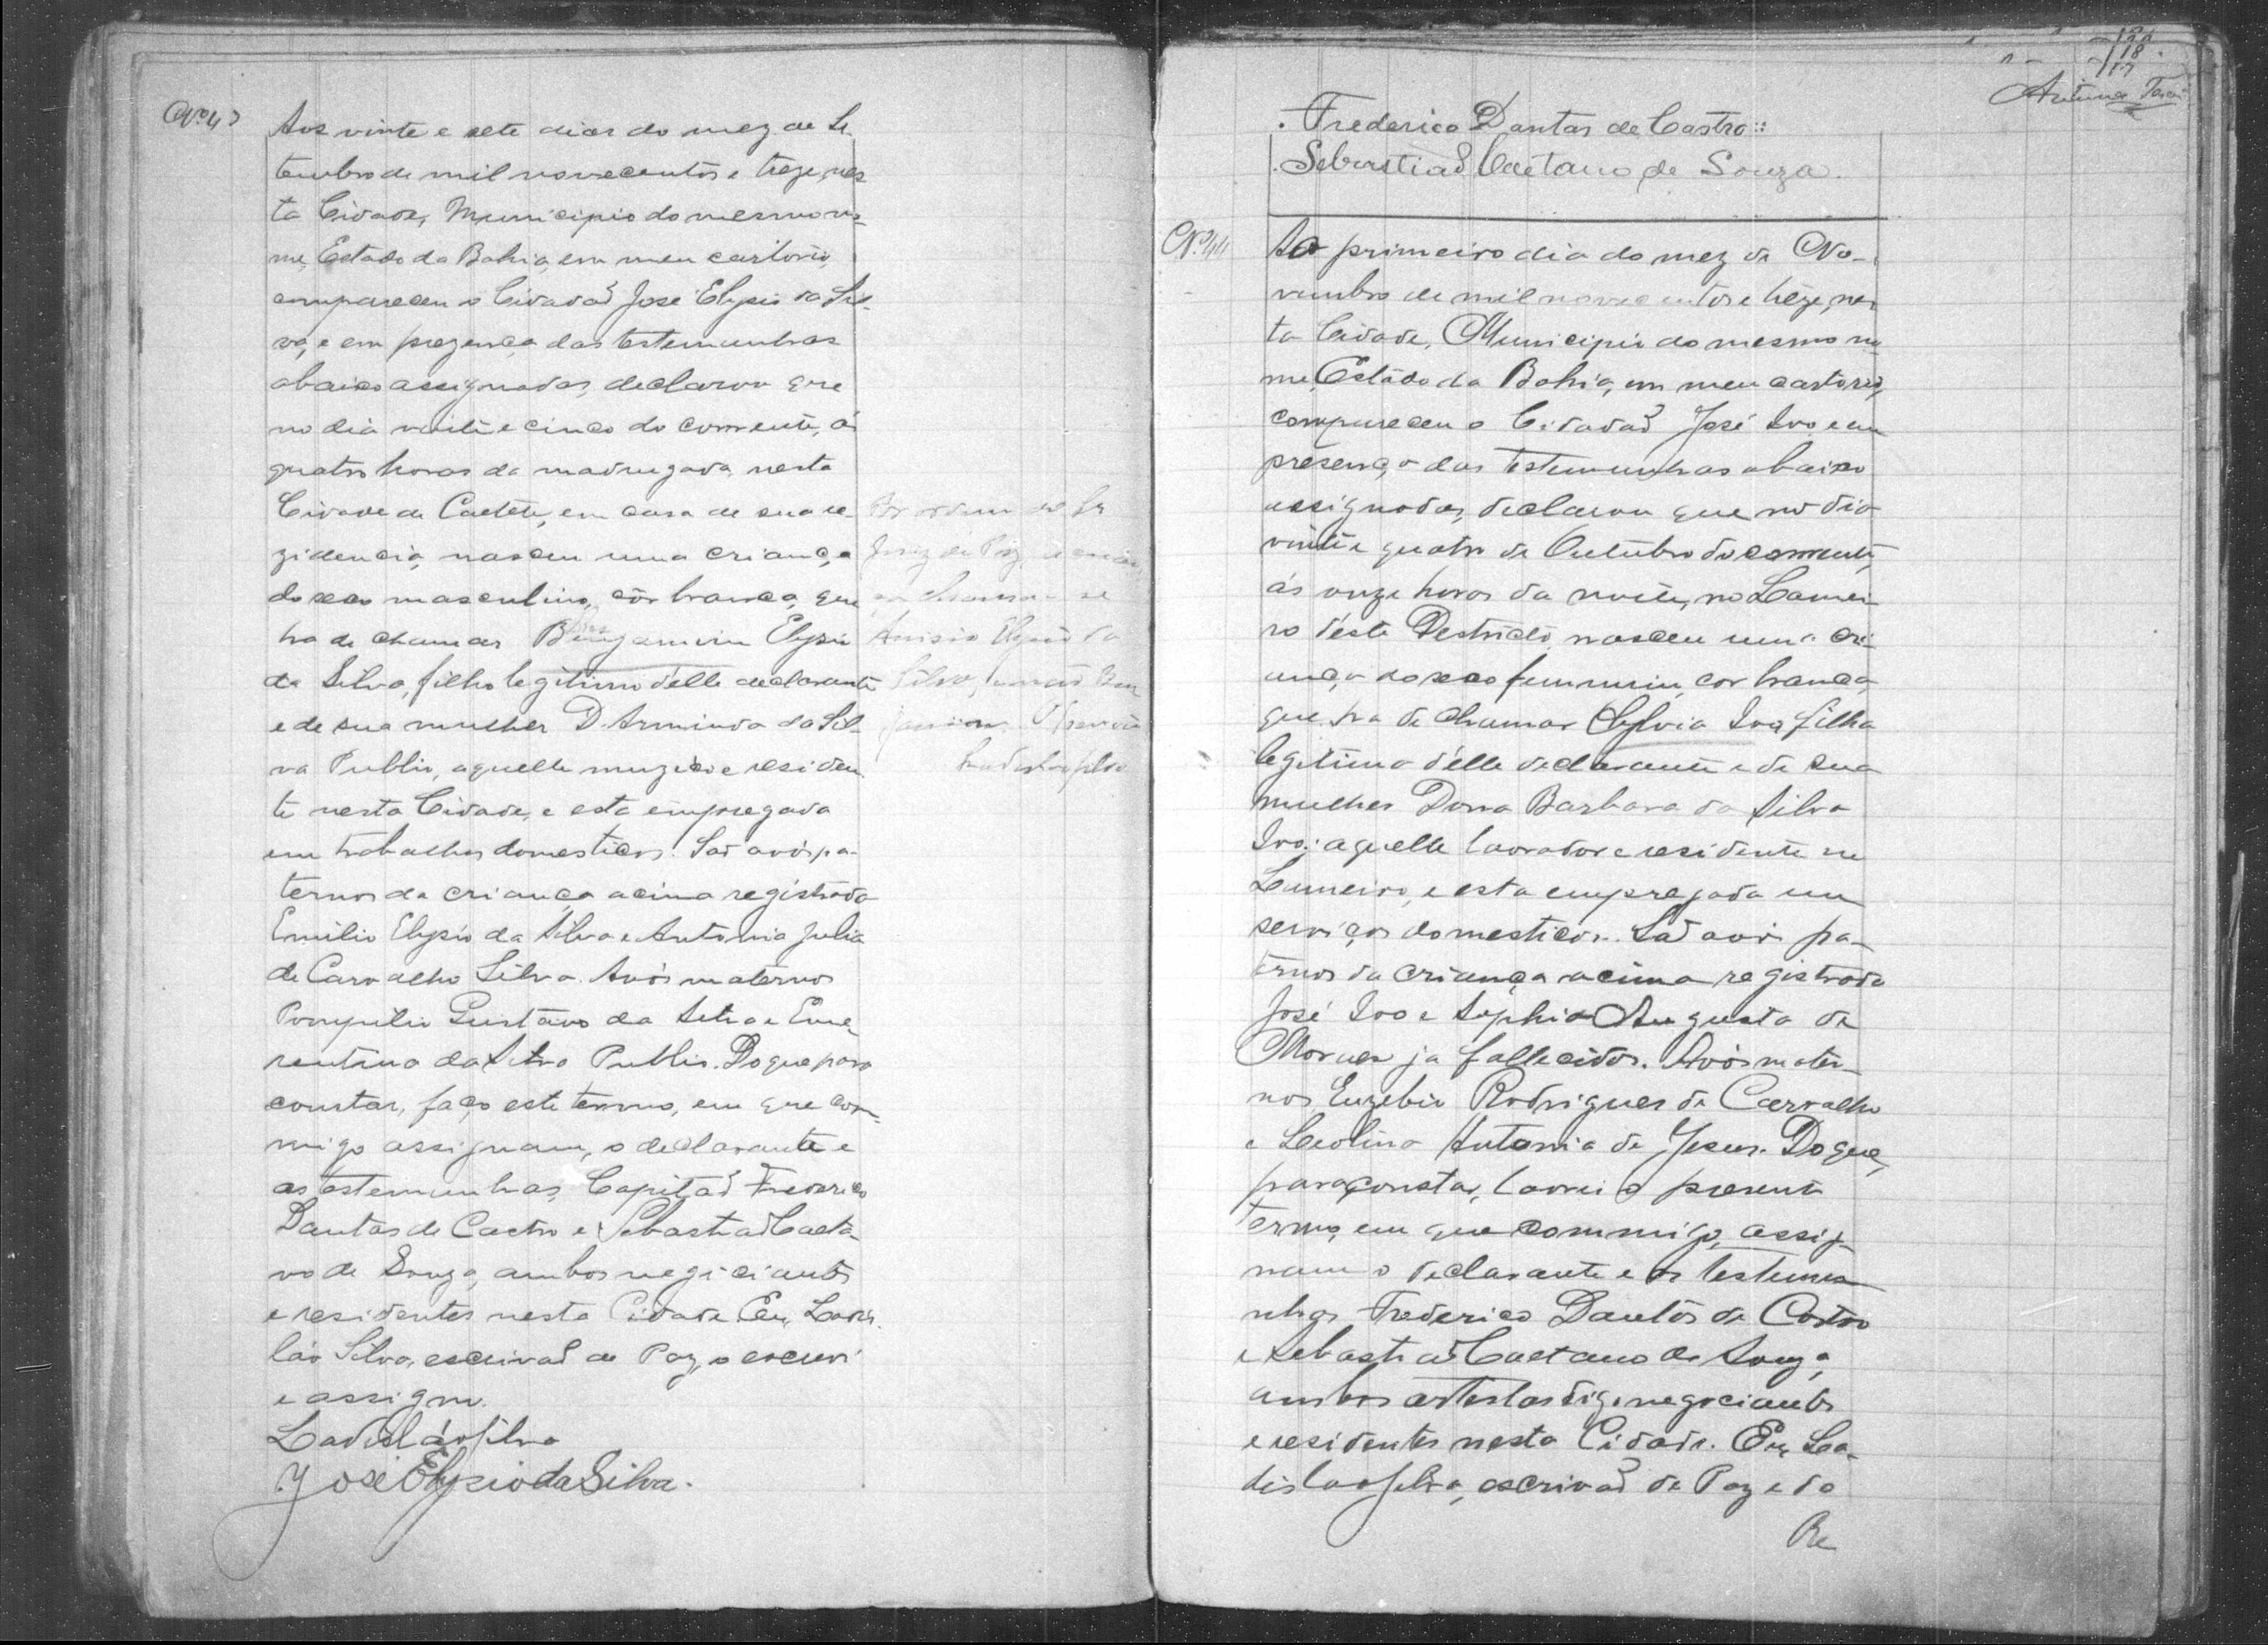 Nº 43
Aos vinte e sete dias do mez de Se
tembro de mil novecentos e treze, nes
ta Cidade, Municipio do mesmo no-
me, Estado da Bahia, em meu cartorio,
compareceu o Cidadaõ José Elysio da Sil-
va, e em prezença das testemunhas
abaixo assignadas, declarou que
no dia vinte e cinco do corrente, ás
quatro horas da madrugada, nesta
Cidade de Caeteté, em casa de sua re-
zidencia, nasceu uma criança
do sexo masculino, côr branca, que
ha de chamar Benjamim Elysio
da Silva, filho legitimo d'elle declarante
e de sua mulher D. Arminda da Sil-
va Publio, aquelle muzico e residen
te nesta Cidade, e esta empregada
em trabalhos domesticos. Saõ avós pa-
ternos da criança acima registrada
Emilio Elysio da Silva e Antonia Julia
de Carvalho Silva. Avós maternos
Pompilio Gustavo da Silva e Eme
rentina da Silva Publio. Do que para
constar, faço este termo, em que com-
migo assignam, o declarante e
as testemunhas, Capitaõ Frederico
Dantas de Castro e Sebastiaõ Caeta
no de Souza, ambos negociantes
e residentes nesta Cidade Eu, Ladis
láo Silva, escrivaõ de Paz, o escrevi
e assigno.
Ladisláo Silva
José Elysio da Silva.
Por ordem do Sr
Juiz de Paz, a crian
ça chama-se
Anisio Elysio da
Silva, e naõ Ben
jamim. O escrivaõ
Ladislao Silva
Frederico Dantas de Castro::
Sebastiaõ Caetano de Souza.
Nº 44
Ao primeiro dia do mez de No-
vembro de mil novecentos e treze, nes
ta Cidade, Municipio do mesmo no
me, Estado da Bahia, em meu cartorio,
compareceu o Cidadaõ José Ivo e em
presença das testemunhas abaixo
assignadas, declarou que no dia
vinte e quatro de Outubro do corrente,
ás onze horas da noite, no Lamei
ro d'este Destricto, nasceu uma cri-
ança do sexo feminino, cor branca,
que ha de chamar Sylvia Ivo, filha
legitima d'elle declarante e de sua
mulher Dona Barbara da Silva
Ivo; aquelle lavrador e residente no
Lameiro, e esta empregada em
serviços domesticos. Saõ avós pa-
ternos da criança acima registrada
José Ivo e Sophia Augusta de
Moraes ja fallecidos. Avós mater-
nos Euzebio Rodrigues de Carvalho
e Leolina Antonia de Jesus. Do que,
para constar, lavrei o presente
termo, em que commigo, assig-
nam o declarante e as testemu
nhas Frederico Dantas de Castro
e Sebastiaõ Caetano de Souza,
ambos artistas digo negociantes
e residentes nesta Cidade. Eu, La-
dislao Silva, escrivaõ de Paz e do
Re